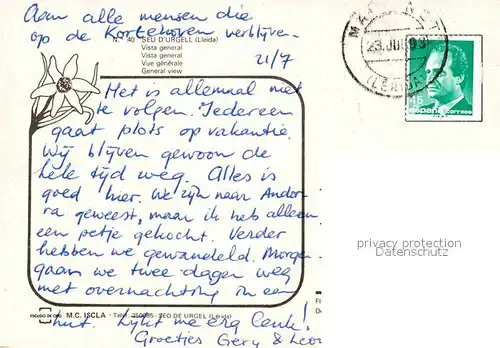 Aan alle mensen die
op de Kortehoven verblijven.
N.° 40 SEU D'URGELL (Lleida)
Vista general
Vista general
Vue générale
General view
21/7
Het is allemaal niet
te volgen. Iedereen
gaat plots op vakantie.
Wij blijven gewoon de
hele tijd weg. Alles is
goed hier. We zijn naar Andor-
ra geweest, maar ik heb alleen
een petje gekocht. Verder
hebben we gewandeld. Morgen
gaan we twee dagen weg
met overnachting in een
hut. Lijkt me erg leuk!
Groetjes Gery & Leon
M.C. ISCLA - SEO DE URGEL (Lérida)
23 JUL 93
(LERIDA)
45
españa correos
privacy protection
Datenschutz